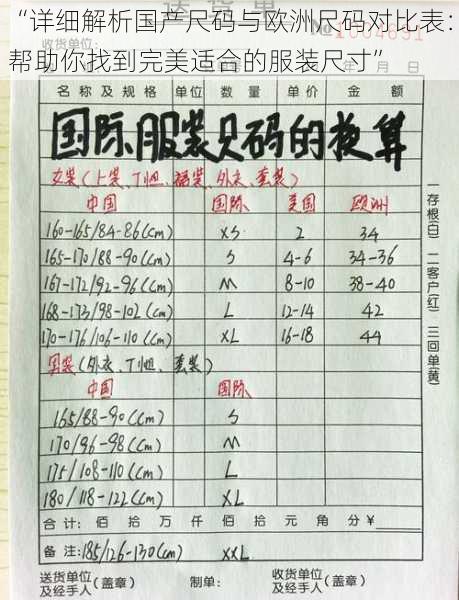 “详细解析国产尺码与欧洲尺码对比表：
帮助你找到完美适合的服装尺寸”
送货单
No 1004691
年 月 日
名称及规格 单位 数量 单价 金 额
国际服装尺码的换算
女装(上装、T恤、裙装、外衣、套装)
中国 国际 美国 欧洲
160-165/84-86(cm) XS 2 34
165-170/88-90(cm) S 4-6 34-36
167-172/92-96(cm) M 8-10 38-40
168-173/98-102(cm) L 12-14 42
170-176/106-110(cm) XL 16-18 44
男装(外衣、T恤、套装)
中国 国际
165/88-90(cm) S
170/96-98(cm) M
175/108-110(cm) L
180/118-122(cm) XL
合计： 佰 拾 万 仟 佰 拾 元 角 分 ¥
备注：185/126-130(cm) XXL
送货单位及经手人(盖章) 制单： 收货单位及经手人(盖章)
一存根(白) 二客户(红) 三回单(黄)